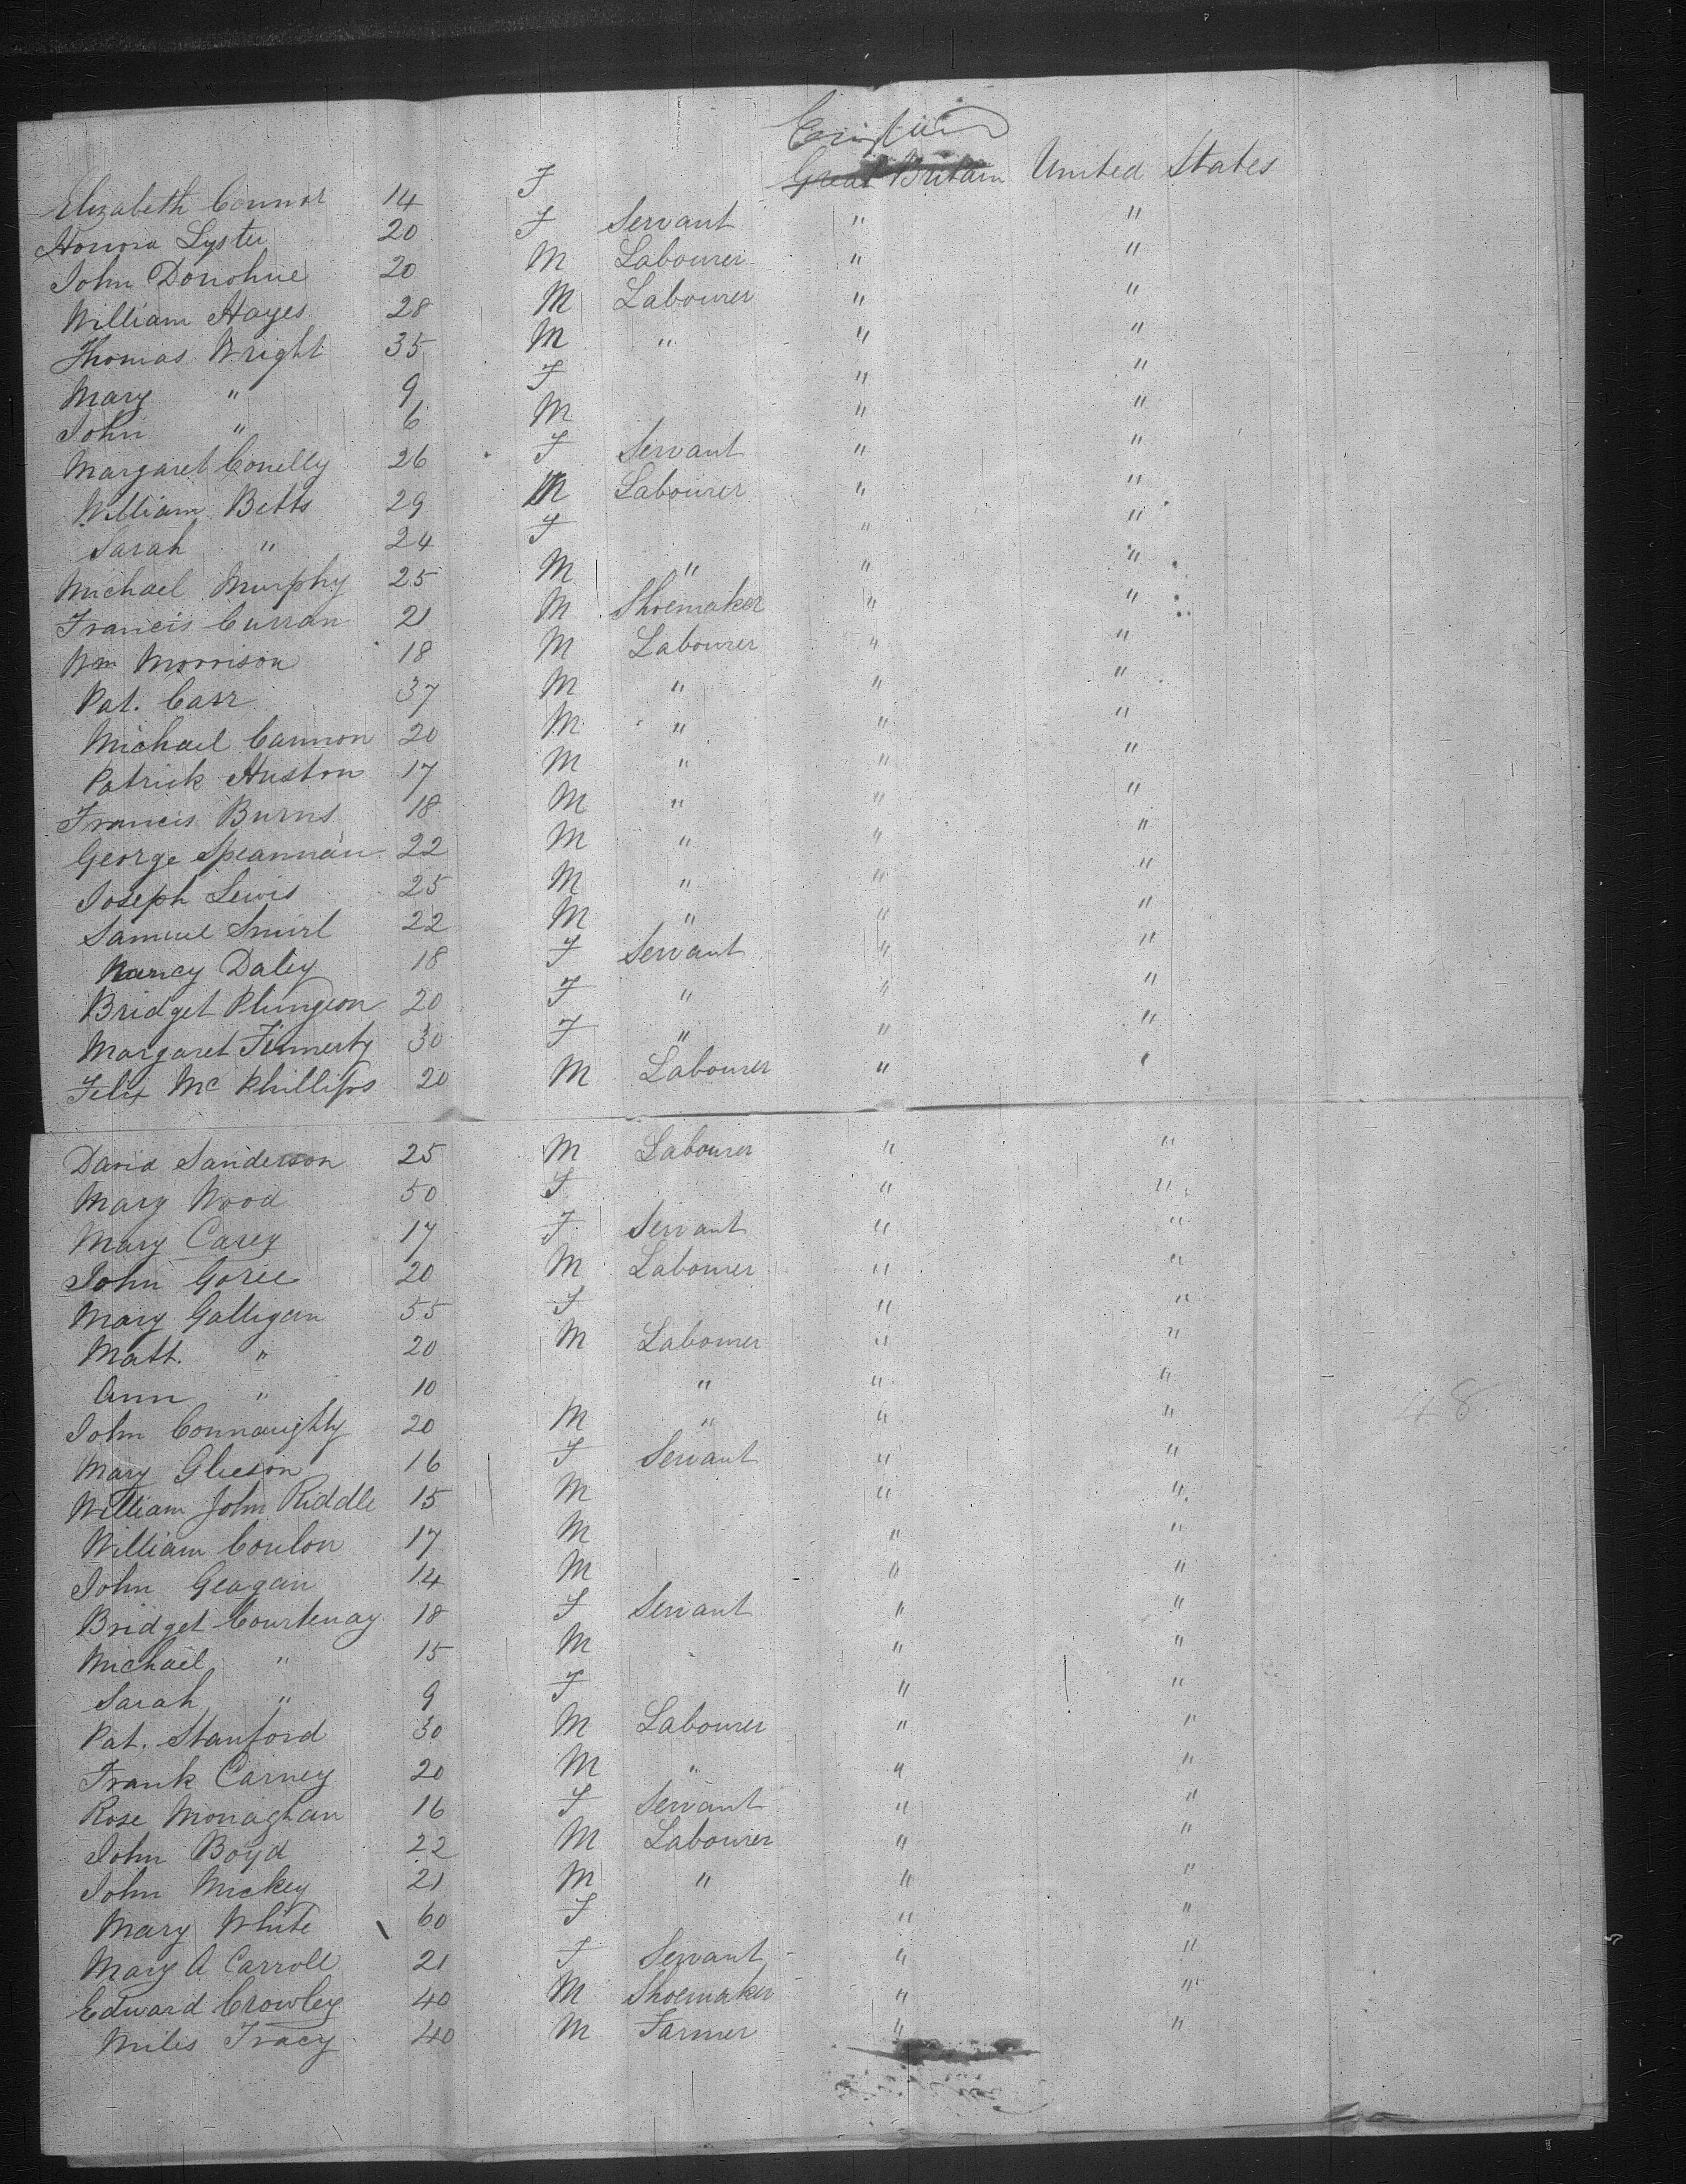 Great Britain United States
Elizabeth Connor 14 F
Honora Lyster 20 F Servant " "
John Donohue 20 M Labourer " "
William Hayes 28 M Labourer " "
Thomas Wright 35 M " " "
Mary " 9 F " "
John " 6 M " "
Margaret Conelly 26 F Servant " "
William Betts 29 M Labourer " "
Sarah " 24 F " "
Michael Murphy 25 M " " "
Francis Curran 21 M Shoemaker " "
Wm Morrison 18 M Labourer " "
Pat. Carr 37 M " " "
Michael Cannon 20 M " " "
Patrick Huston 17 M " " "
Francis Burns 18 M " " "
George Speannan 22 M " " "
Joseph Lewis 25 M " " "
Samuel Smirl 22 M " " "
Nancy Daley 18 F Servant " "
Bridget Plungeon 20 F " " "
Margaret Finnerty 30 F " " "
Felix Mc Phillips 20 M Labourer " "
David Sanderson 25 M Labourer " "
Mary Wood 50 F " "
Mary Carey 17 F Servant " "
John Goree 20 M Labourer " "
Mary Galligan 55 F " "
Matt. " 20 M Labourer " "
Ann " 10 " " "
John Connaughty 20 M " " "
48
Mary Gleeson 16 F Servant " "
William John Riddle 15 M " "
William Conlon 17 M " "
John Geagan 14 M " "
Bridget Courtenay 18 F Servant " "
Michael " 15 M " "
Sarah " 9 F " "
Pat. Stanford 30 M Labourer " "
Frank Carney 20 M " " "
Rose Monaghan 16 F Servant " "
John Boyd 22 M Labourer " "
John Mickey 21 M " " "
Mary White 60 F " "
Mary A Carroll 21 F Servant " "
Edward Crowley 40 M Shoemaker " "
Miles Tracy 40 M Farmer " "